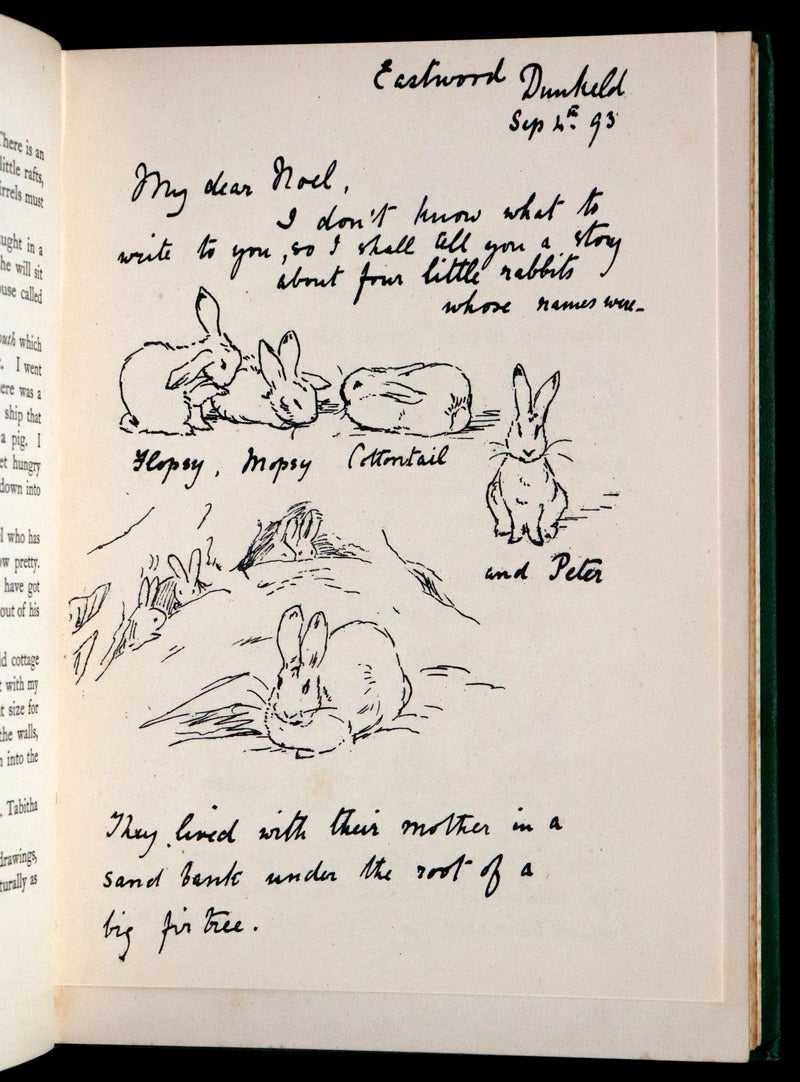 There is an
little rafts,
irrels must
ught in a
he will sit
ouse called
outh which
I went
ere was a
ship that
a pig. I
et hungry
down into
l who has
ow pretty.
have got
out of his
ld cottage
t with my
t size for
the walls,
n into the
. Tabitha
drawings,
turally as
Eastwood Dunkeld
Sep 4th 93
My dear Noel,
I don't know what to
write to you, so I shall tell you a story
about four little rabbits
whose names were—
Flopsy, Mopsy Cottontail
and Peter
They lived with their mother in a
sand bank under the root of a
big fir tree.